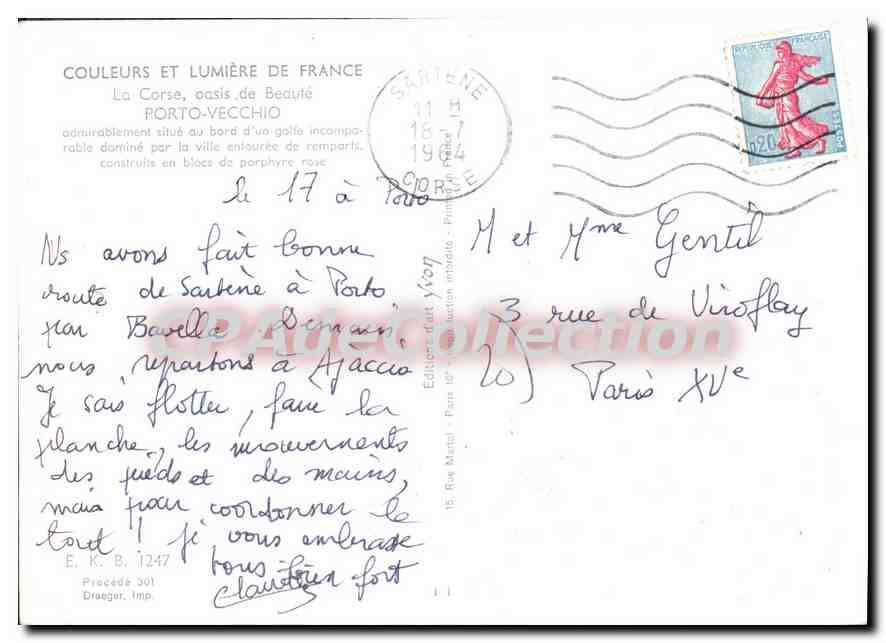 COULEURS ET LUMIÈRE DE FRANCE
La Corse, oasis de Beauté
PORTO-VECCHIO
admirablement situé au bord d'un golfe incompa-
rable dominé par la ville entourée de remparts,
construits en blocs de porphyre rose
le 17 à Porto
Ns avons fait bonne
route de Sartène à Porto
par Bavella. Demain
nous repartons à Ajaccio
Je sais flotter, faire la
planche, les mouvements
des pieds et des mains,
mais pour coordonner le
tout ! je vous embrasse
tous bien fort
E. K. B. 1247
Procédé 301
Draeger, Imp.
Éditions d'art Yvon
15, Rue Martel - Paris 10e - Reproduction interdite - Printed in France
SARTÈNE
11 H
18 - 7
1964
CORSE
REPUBLIQUE FRANÇAISE
0,20
POSTES
M et Mme Gentil
3 rue de Viroflay
Paris XVe
CPAdeCollection